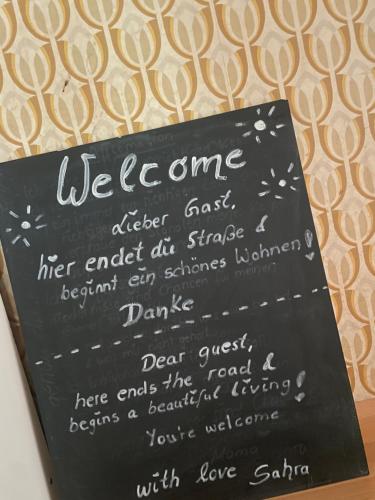 Welcome
Lieber Gast,
hier endet die Straße &
beginnt ein schönes Wohnen!
Danke
Dear guest,
here ends the road &
begins a beautiful living!
You're welcome
with love Sahra